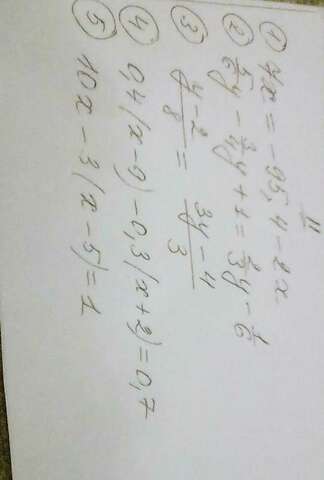 11
① 7x = -95,4 - 2x
② 5/6 y - 3/4 y + 1 = 2/3 y - 1/6
③ (y - 2)/8 = (3y - 4)/3
④ 0,4(x - 9) - 0,3(x + 2) = 0,7
⑤ 10x - 3(x - 5) = 1